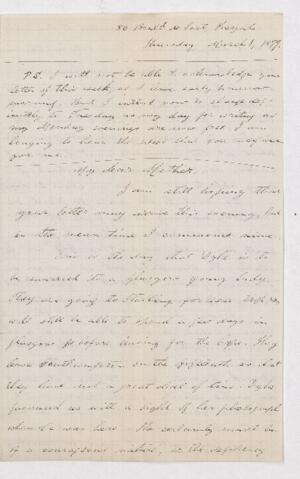 Thursday March 1, 1877.
P.S. I will not be able to acknowledge your
letter of this week, as I leave early tomorrow
morning. But I intend now to
to Tuesday as my day for writing as
my Monday evenings are now free I am
longing to hear the news that you may have
for me.
My dear Mother,
I am still hoping that
your letter may arrive this evening, but
in the mean time I commence mine.
This is the day that is to
be married to a Glasgow young lady.
They are going to for
will still be able to spend a few days in
Glasgow before leaving for the Cape. They
leave Southampton on the so that
they have not a great deal of time.
us with a sight of her photograph
when he was here. He certainly must be
of a courageous nature, as the